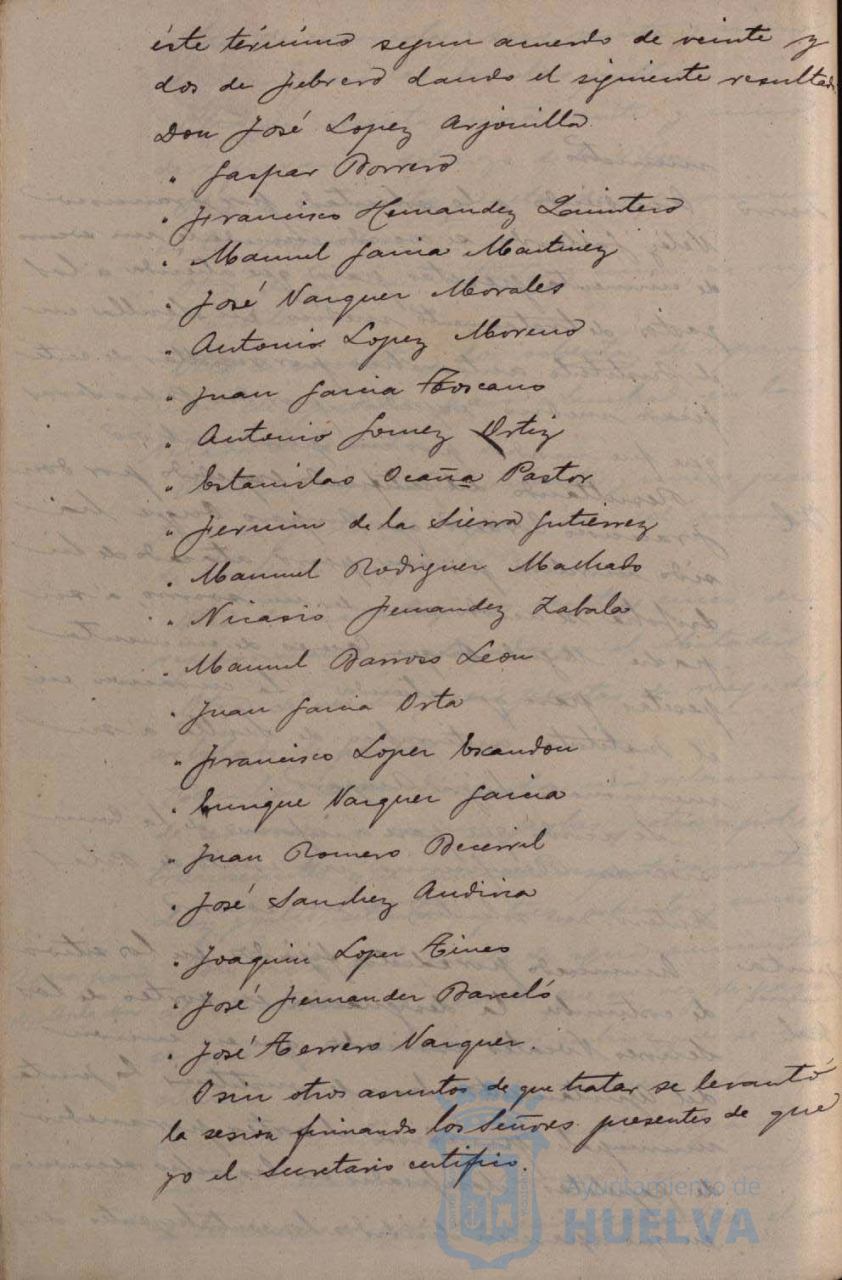 éste término segun acuerdo de veinte y
dos de Febrero dando el siguiente resultado
Don José Lopez Arjonilla
" Gaspar Borrero
" Francisco Hernandez Quintero
" Manuel Garcia Martinez
" José Vazquez Morales
" Antonio Lopez Moreno
" Juan Garcia Toscano
" Antonio Gomez Ortiz
" Estanislao Ocaña Pastor
" Fermin de la Sierra Gutierrez
" Manuel Rodriguez Machado
" Nicasio Fernandez Zabala
" Manuel Barroso Leon
" Juan Garcia Orta
" Francisco Lopez Escandon
" Enrique Vazquez Garcia
" Juan Romero Becerril
" José Sanchez
" Joaquin Lopez
" José Fernandez Barceló
" José Terrero Vazquez.
O sin otros asuntos de que tratar se levantó
la sesion firmando los Señores presentes de que
yo el Secretario certifico.
Ayuntamiento de
HUELVA